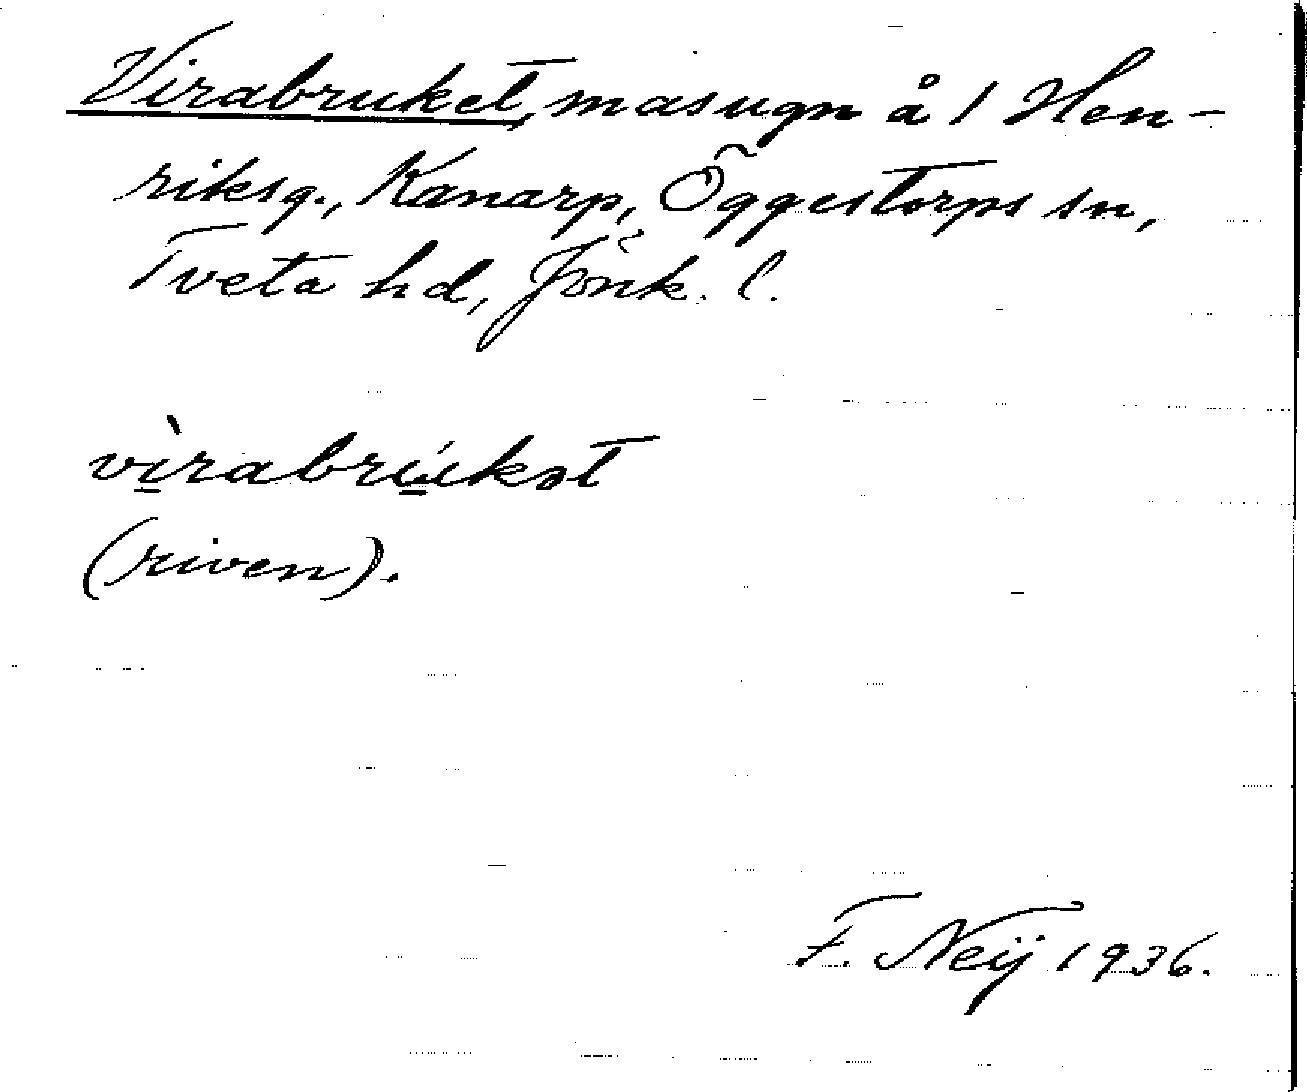 Virabruket, masugn å 1 Hen-
riksg., Kanarp, Öggestorps sn,
Tveta hd, Jönk. l.
vì̱rabrú̱kət
(riven).
F. Neij 1936.